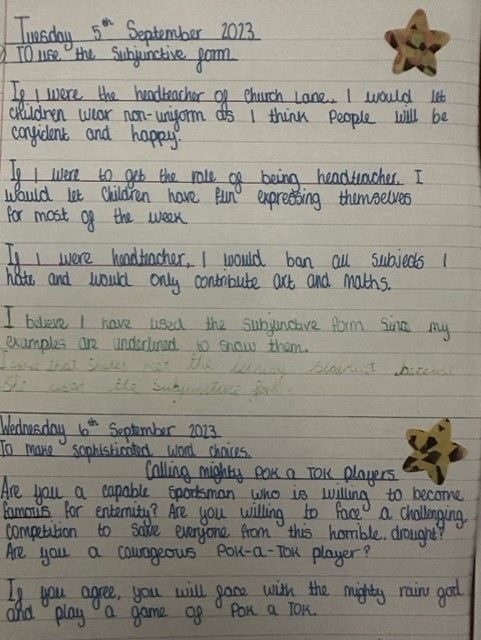 Tuesday 5th September 2023
To use the Subjunctive form
If I were the headteacher of Church Lane, I would let
children wear non-uniform as I think People will be
confident and happy.
If I were to get the role of being headteacher, I
would let children have fun expressing themselves
for most of the week
If I were headteacher, I would ban all subjects I
hate and would only contribute art and maths.
I believe I have used the subjunctive form Since my
examples are underlined to show them.
I agree that met the because
She uses the subjunctive form.
Wednesday 6th September 2023
To make sophisticated word choices.
Calling mighty POK a TOK players
Are you a capable sportsman who is willing to become
famous for enternity? Are you willing to face a challenging
competition to save everyone from this horrible drought?
Are you a courageous POK-a-TOK player?
If you agree, you will face with the mighty rain god
and play a game of POK a TOK.